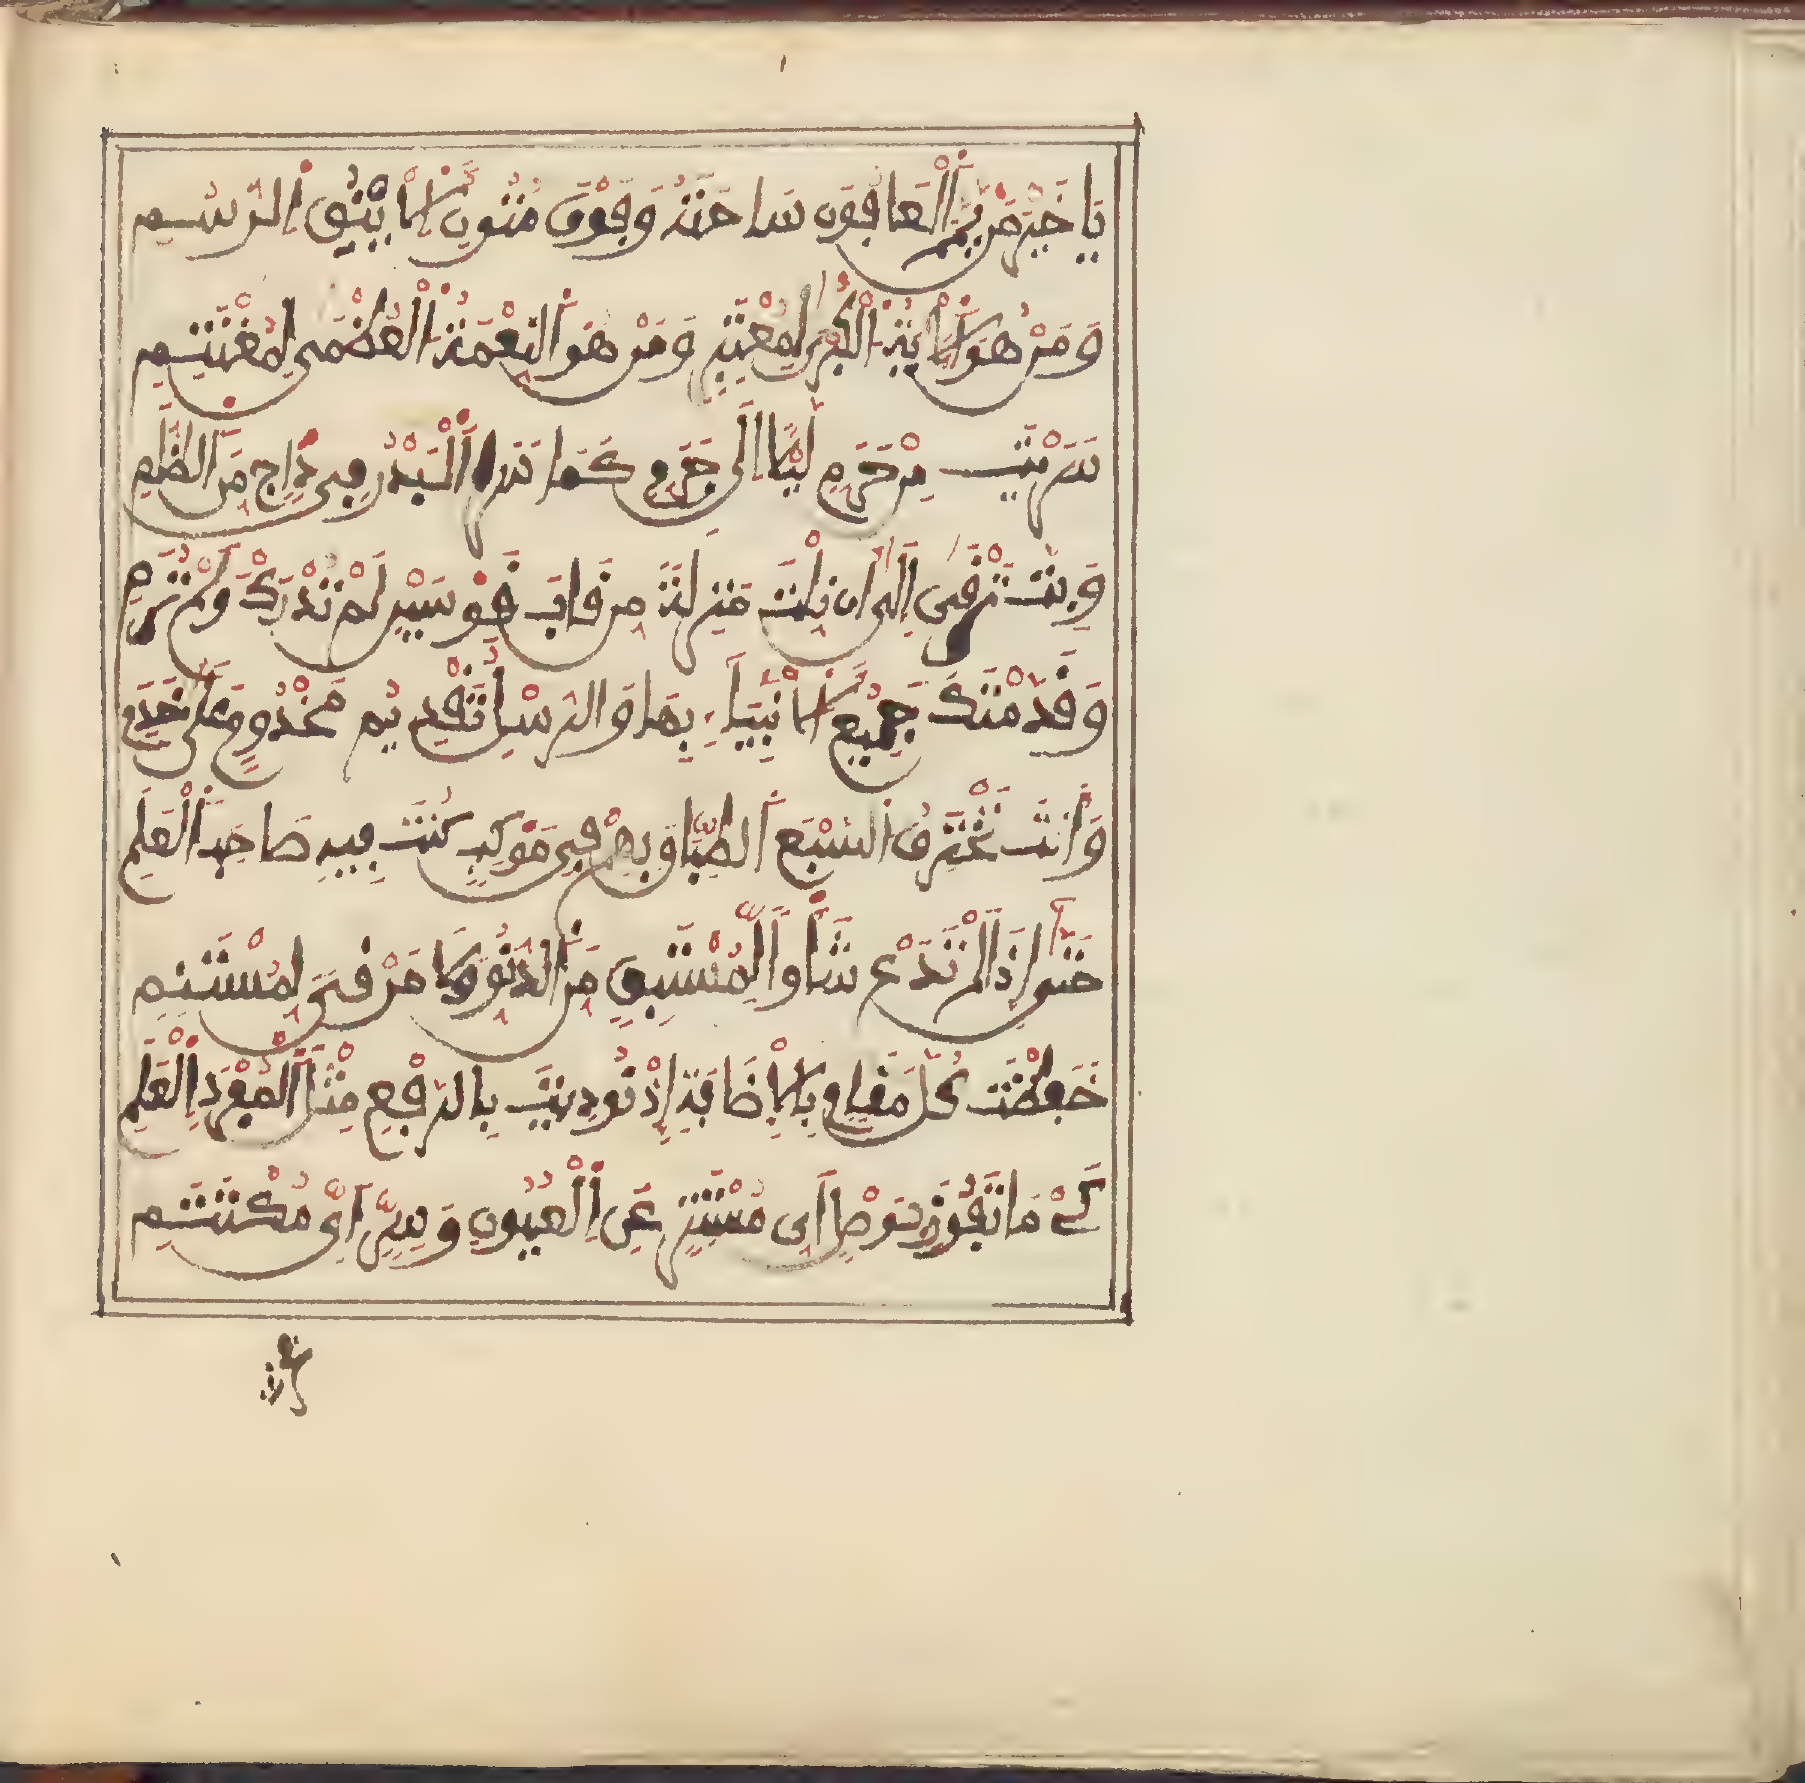 يَا خَيْرَ مَنْ يَمَّمَ ٱلْعَافُونَ سَاحَتَهُ وَفَوْقَ مُتُونِ ٱلْأَيْنُقِ ٱلرُّسُمِ
وَمَنْ هُوَ ٱلْأَيَةُ ٱلْكُبْرَى لِمُعْتَبِرٍ وَمَنْ هُوَ ٱلنِّعْمَةُ ٱلْعُظْمَى لِمُغْتَنِمِ
سَرَيْتَ مِنْ حَرَمٍ لَيْلًا إِلَى حَرَمٍ كَمَا سَرَا ٱلْبَدْرُ فِى دَاجٍ مِنَ ٱلظُّلَمِ
وَبِتَّ تَرْقَى إِلَى أَن نِلْتَ مَنْزِلَةً مِن قَابَ قَوْسَيْنِ لَمْ تُدْرَكْ وَلَمْ تُرَمِ
وَقَدَّمَتْكَ جَمِيعُ ٱلْأَنْبِيَاءِ بِهَا وَالرُّسْلِ تَقْدِيمَ مَخْدُومٍ عَلَى خَدَمِ
وَأَنتَ تَخْتَرِقُ ٱلسَّبْعَ ٱلطِّبَاقَ بِهِمْ فِى مَوْكِبٍ كُنتَ فِيهِ صَاحِبَ ٱلْعَلَمِ
حَتَّى إِذَا لَمْ تَدَعْ شَأْوًا لِمُسْتَبِقٍ مِنَ ٱلدُّنُوِّ وَلَا مَرْقًى لِمُسْتَنِمِ
خَفَضْتَ كُلَّ مَقَامٍ بِٱلْإِضَافَةِ إِذْ نُودِيتَ بِالرَّفْعِ مِثْلَ ٱلْمُفْرَدِ ٱلْعَلَمِ
كَىْ مَا تَفُوزَ بِوَصْلٍ أَىِّ مُسْتَتِرٍ عَنِ ٱلْعُيُونِ وَسِرٍّ أَىِّ مُكْتَتَمِ